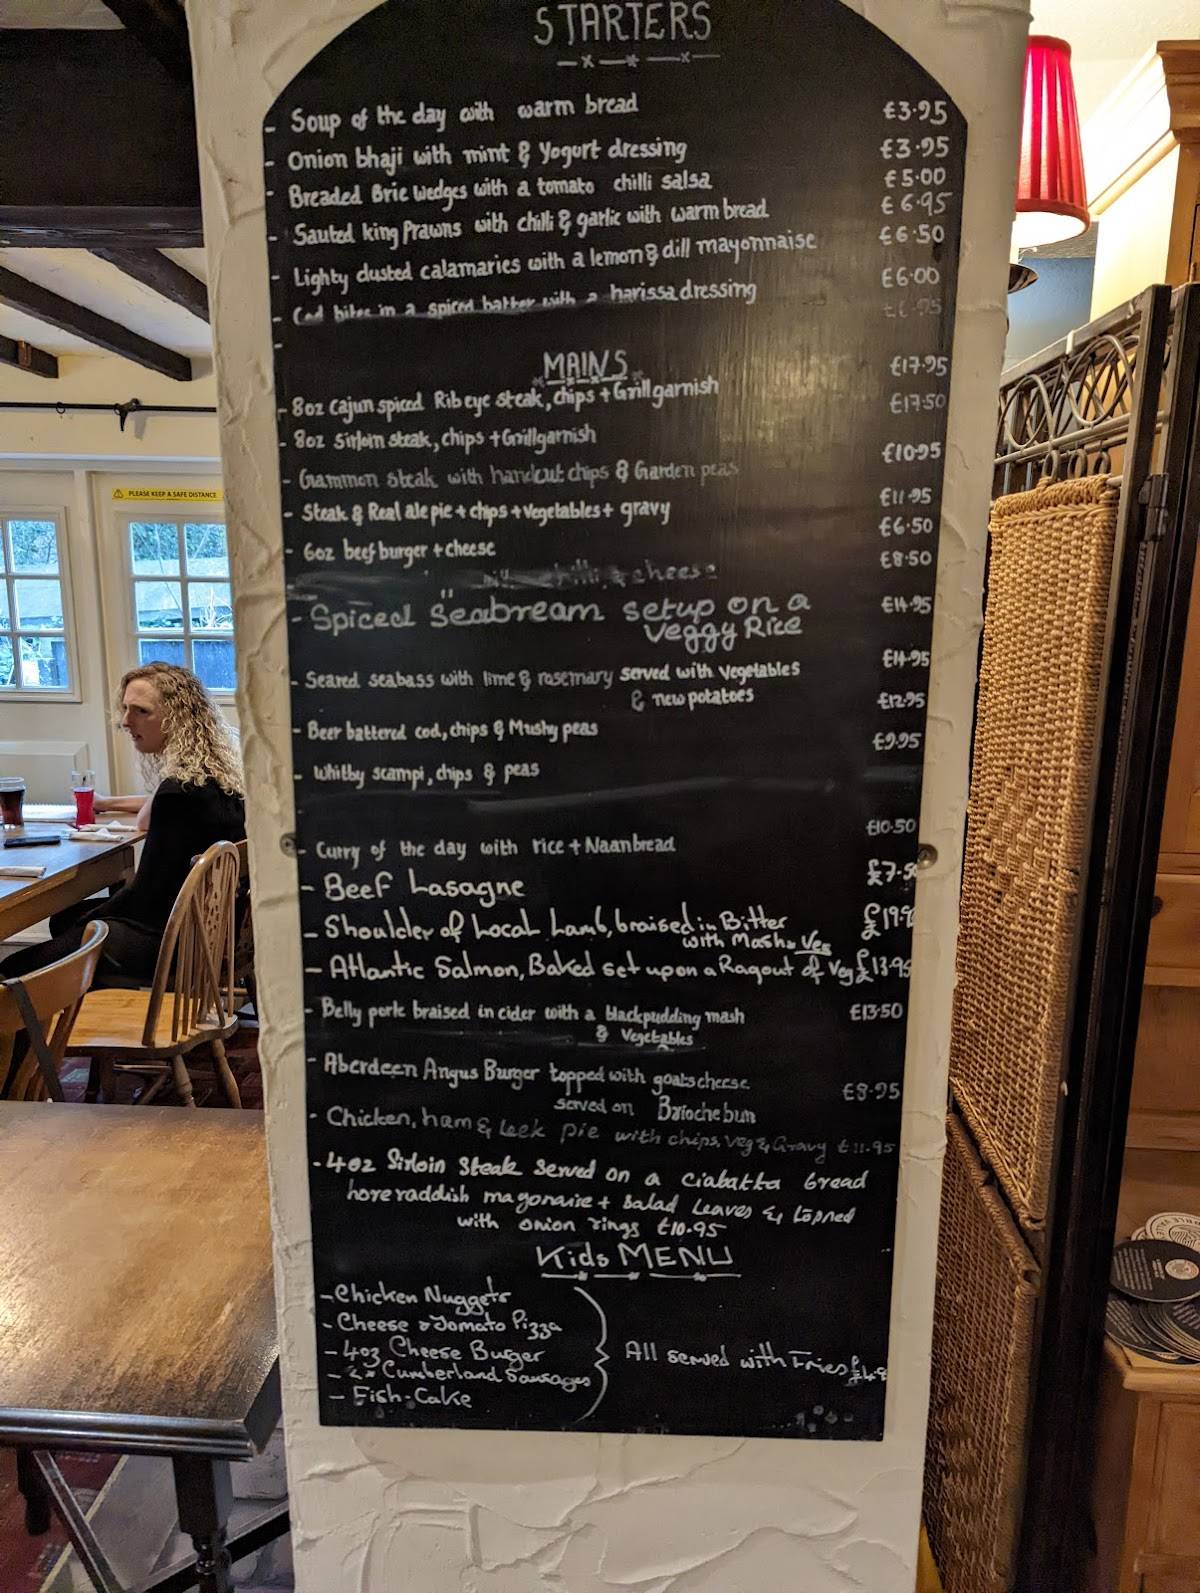 STARTERS
- Soup of the day with warm bread £3.95
- Onion bhaji with mint & Yogurt dressing £3.95
- Breaded Brie Wedges with a tomato chilli salsa £5.00
- Sauted king Prawns with chilli & garlic with warm bread £6.95
- Lighty dusted calamaries with a lemon & dill mayonnaise £6.50
- Cod bites in a spiced batter with a harissa dressing £6.00
- £6.95
MAINS
- 8oz Cajun spiced Rib eye steak, chips + Grill garnish £17.95
- 8oz Sirloin steak, chips + Grill garnish £17.50
- Gammon steak with handcut chips & Garden peas £10.95
- Steak & Real ale pie + chips + vegetables + gravy £11.95
- 6oz beef burger + cheese £6.50
chilli & cheese £8.50
- Spiced Seabream setup on a £14.95
Veggy Rice
- Seared seabass with lime & rosemary served with vegetables £14.95
& new potatoes
- Beer battered cod, chips & Mushy peas £12.95
- Whitby scampi, chips & peas £9.95
- Curry of the day with rice + Naanbread £10.50
- Beef Lasagne £7.50
- Shoulder of Local Lamb, braised in Bitter £19.9
with Mash & Veg
- Atlantic Salmon, Baked set upon a Ragout of Veg £13.95
- Belly pork braised in cider with a blackpudding mash £13.50
& Vegetables
- Aberdeen Angus Burger topped with goatscheese £8.95
served on Briochebun
- Chicken, ham & leek pie with chips, veg & Gravy £11.95
- 4oz Sirloin Steak served on a ciabatta bread
horeraddish mayonaise + Salad Leaves & topned
with onion rings £10.95
Kids MENU
- Chicken Nuggets
- Cheese & Tomato Pizza
- 4oz Cheese Burger
All served with Fries £4.9
- 2x Cumberland Sausages
- Fish-Cake
PLEASE KEEP A SAFE DISTANCE